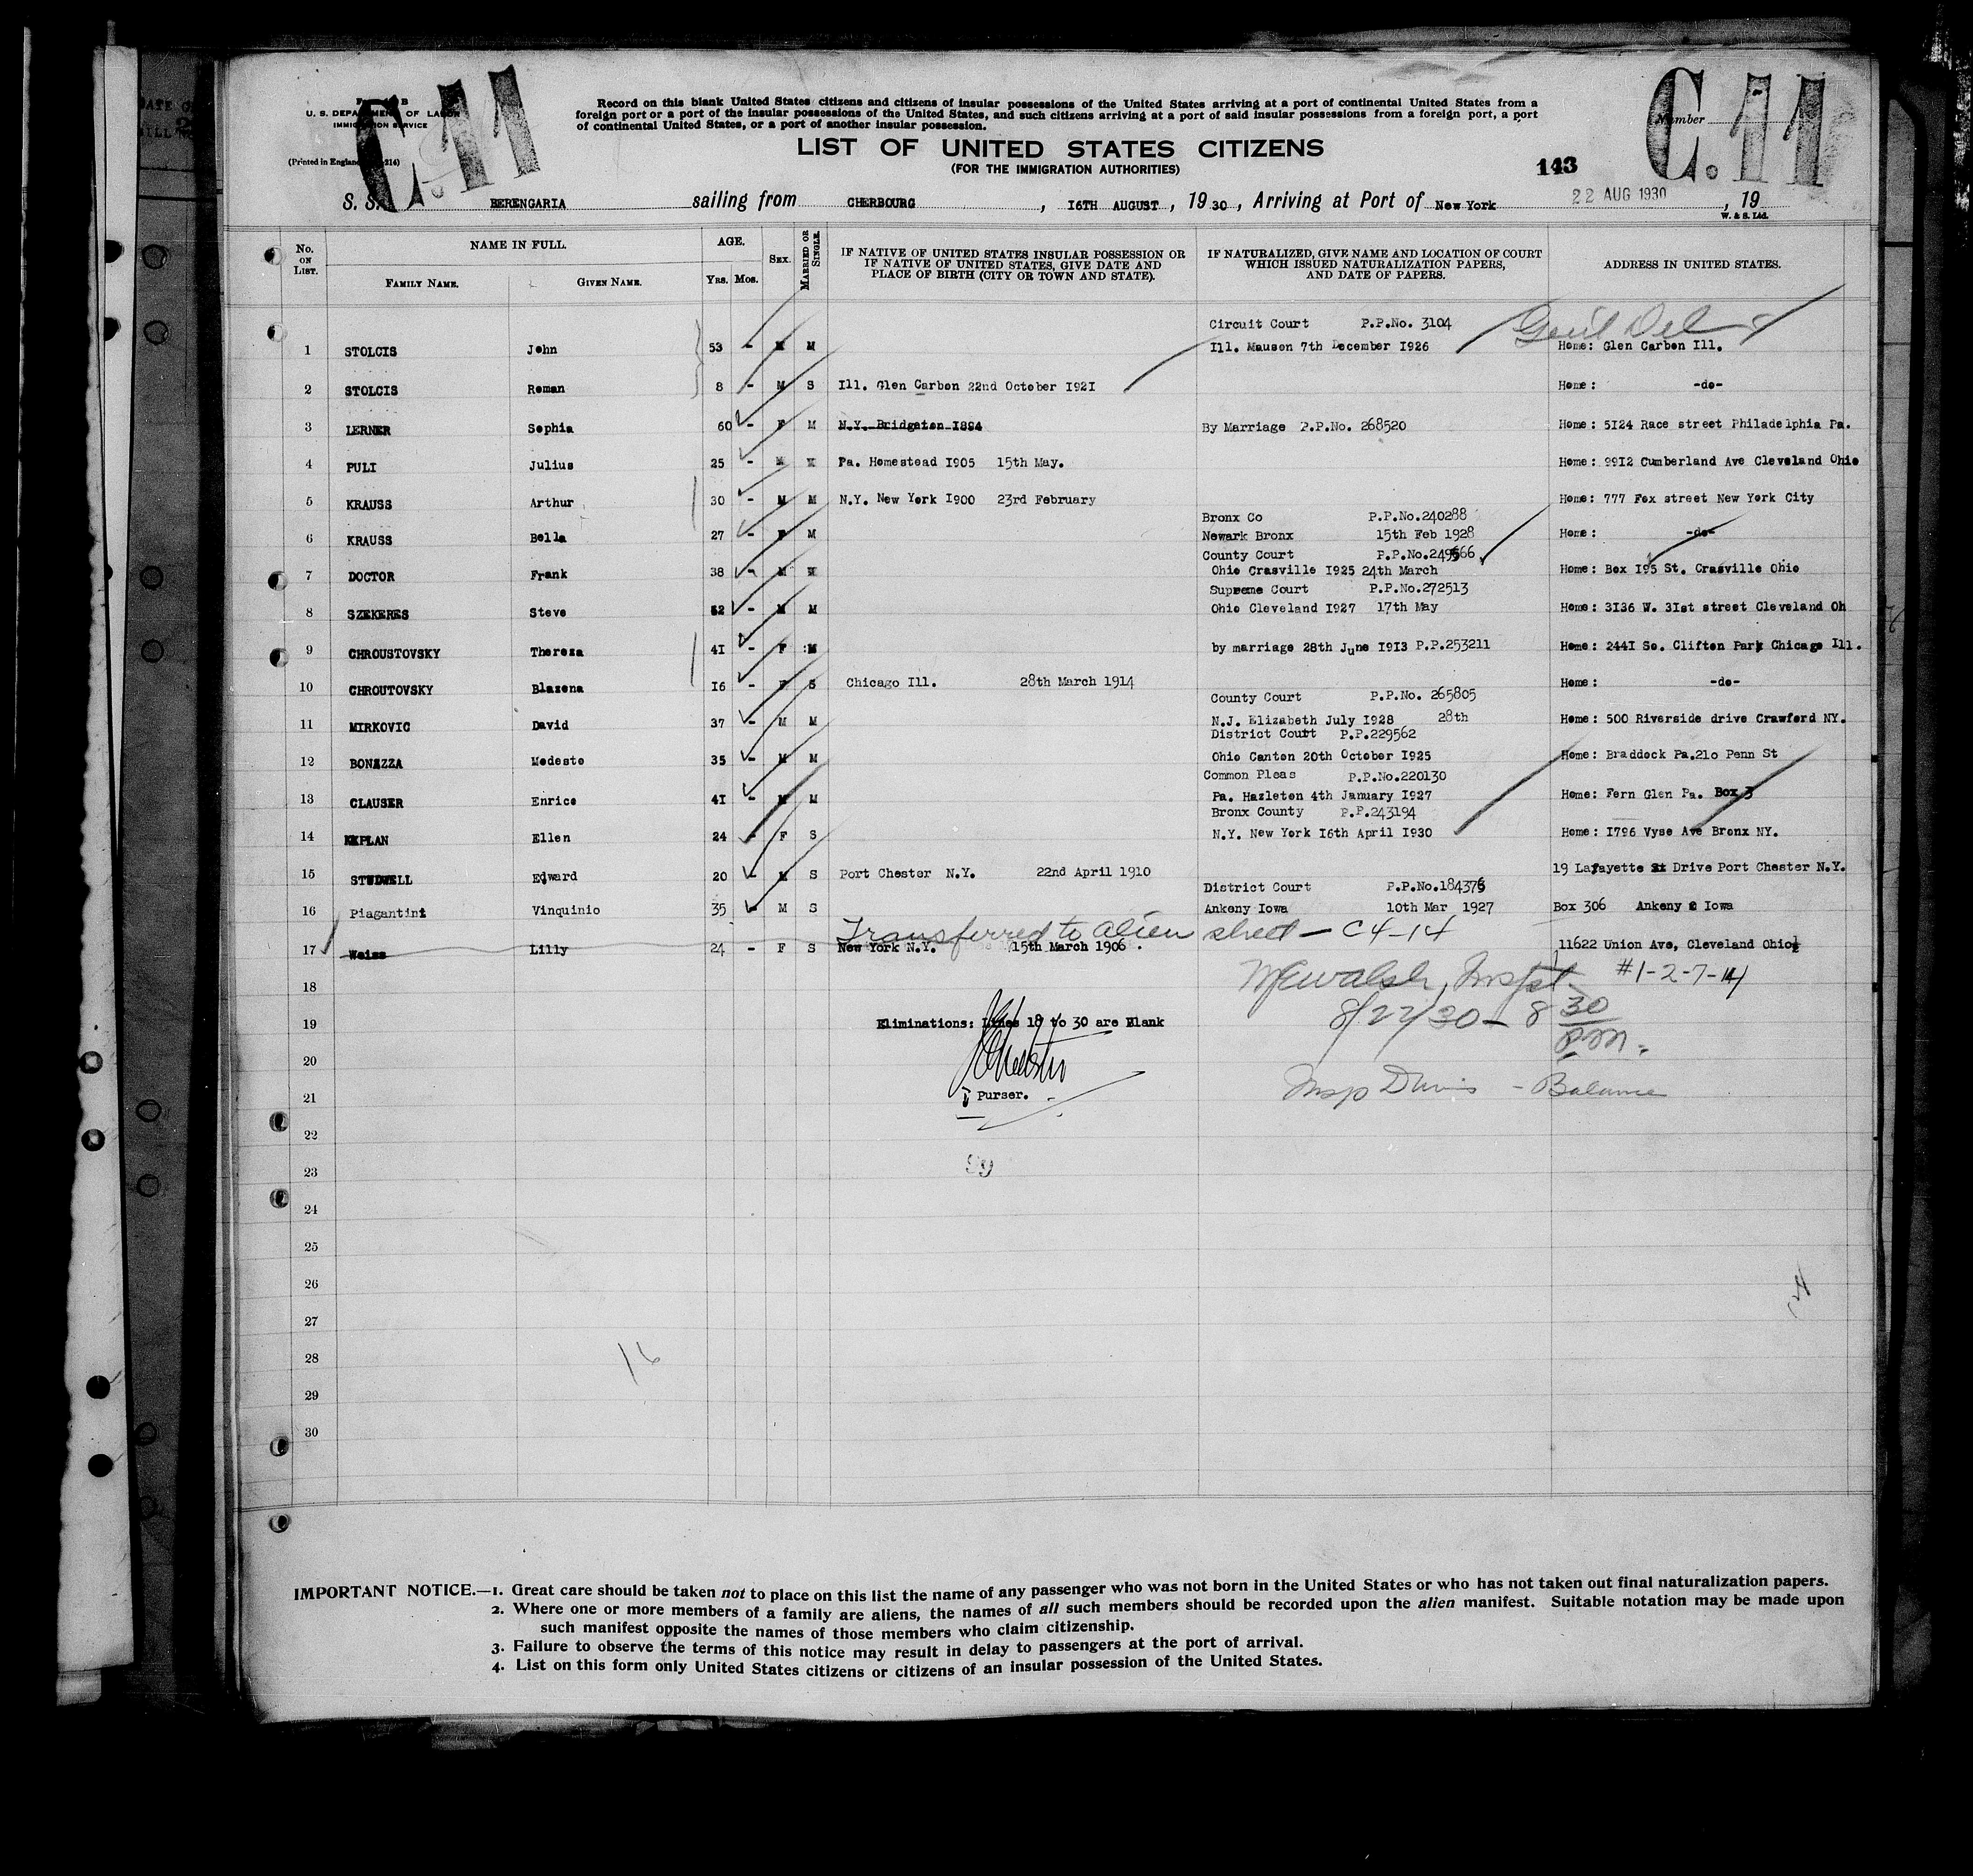 C.11
C.11
U. S. DEPARTMENT OF LABOR
IMMIGRATION SERVICE
(Printed in England
Record on this blank United States citizens and citizens of insular possessions of the United States arriving at a port of continental United States from a
foreign port or a port of the insular possessions of the United States, and such citizens arriving at a port of said insular possessions from a foreign port, a port
of continental United States, or a port of another insular possession.
Number
LIST OF UNITED STATES CITIZENS
(FOR THE IMMIGRATION AUTHORITIES)
143
S. S. BERENGARIA sailing from CHERBOURG, 16TH AUGUST, 1930, Arriving at Port of New York 22 AUG 1930, 19
W. & S. Ltd.
No. ON LIST. NAME IN FULL. FAMILY NAME. GIVEN NAME. AGE. Yrs. Mos. SEX. MARRIED OR SINGLE. IF NATIVE OF UNITED STATES INSULAR POSSESSION OR IF NATIVE OF UNITED STATES, GIVE DATE AND PLACE OF BIRTH (CITY OR TOWN AND STATE). IF NATURALIZED, GIVE NAME AND LOCATION OF COURT WHICH ISSUED NATURALIZATION PAPERS, AND DATE OF PAPERS. ADDRESS IN UNITED STATES.
Circuit Court P.P.No. 3104 Genl Del
1 STOLCIS John 53 - M M Ill. Mauson 7th December 1926 Home: Glen Carbon Ill.
2 STOLCIS Roman 8 - M S Ill. Glen Carbon 22nd October 1921 Home: -do-
3 LERNER Sophia 60 - F M N.Y. Bridgeton 1894 By Marriage P.P.No. 268520 Home: 5124 Race street Philadelphia Pa.
4 PULI Julius 25 - M M Pa. Homestead 1905 15th May. Home: 9912 Cumberland Ave Cleveland Ohio
5 KRAUSS Arthur 30 - M M N.Y. New York 1900 23rd February Home: 777 Fox street New York City
Bronx Co P.P.No.240288
6 KRAUSS Bella 27 - F M Newark Bronx 15th Feb 1928 Home: -do-
County Court P.P.No.249566
7 DOCTOR Frank 38 - M M Ohio Crasville 1925 24th March Home: Box 195 St. Crasville Ohio
Supreme Court P.P.No.272513
8 SZEKERES Steve 52 - M M Ohio Cleveland 1927 17th May Home: 3136 W. 31st street Cleveland Oh
9 CHROUSTOVSKY Thereza 41 - F M by marriage 28th June 1913 P.P.253211 Home: 2441 So. Clifton Park Chicago Ill.
10 CHROUTOVSKY Blazena 16 - F S Chicago Ill. 28th March 1914 Home: -do-
County Court P.P.No. 265805
11 MIRKOVIC David 37 - M M N.J. Elizabeth July 1928 28th Home: 500 Riverside drive Crawford NY.
District Court P.P.229562
12 BONAZZA Modesto 35 - M M Ohio Canton 20th October 1925 Home: Braddock Pa.210 Penn St
Common Pleas P.P.No.220130
13 CLAUSER Enrico 41 - M M Pa. Hazleton 4th January 1927 Home: Fern Glen Pa. Box 3
Bronx County P.P.243194
14 KAPLAN Ellen 24 - F S N.Y. New York 16th April 1930 Home: 1796 Vyse Ave Bronx NY.
15 STUDWELL Edward 20 - M S Port Chester N.Y. 22nd April 1910 19 Lafayette Drive Port Chester N.Y.
District Court P.P.No.184375
16 Piagantini Vinquinio 35 - M S Ankeny Iowa 10th Mar 1927 Box 306 Ankeny Iowa
Transferred to alien sheet - C4-14
17 Weiss Lilly 24 - F S New York N.Y. 15th March 1906. 11622 Union Ave, Cleveland Ohio
McWalsh, Inspt. #1-2-7-14
18
8/22/30 - 8 30 P.M.
19 Eliminations: Lines 18 to 30 are Blank
20
Insp Davis - Balance
21 Purser.
22
23 99
24
25
26
27
28 16
29
30
IMPORTANT NOTICE.—1. Great care should be taken not to place on this list the name of any passenger who was not born in the United States or who has not taken out final naturalization papers.
2. Where one or more members of a family are aliens, the names of all such members should be recorded upon the alien manifest. Suitable notation may be made upon
such manifest opposite the names of those members who claim citizenship.
3. Failure to observe the terms of this notice may result in delay to passengers at the port of arrival.
4. List on this form only United States citizens or citizens of an insular possession of the United States.